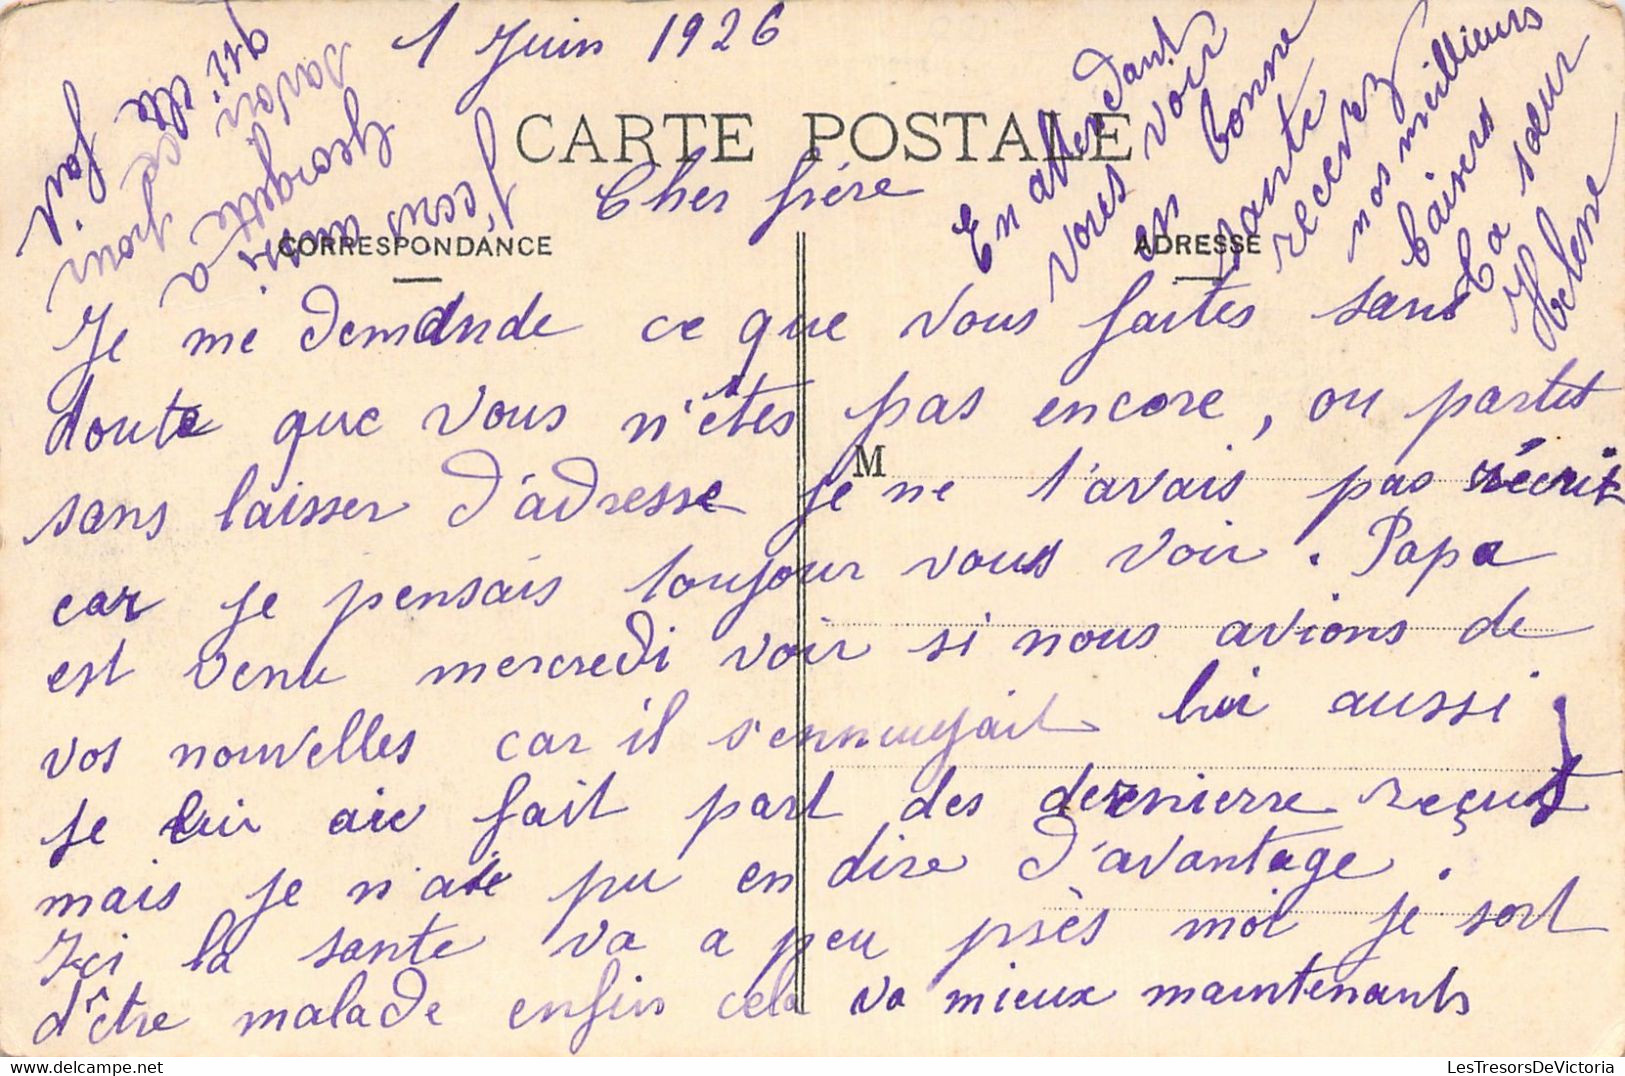 1 Juin 1926
CARTE POSTALE
Cher frère
CORRESPONDANCE
ADRESSE
Je me demande ce que vous faites sans
doute que vous n'êtes pas encore, ou partit
sans laisser d'adresse je ne t'avais pas récrit
M
car je pensais toujour vous voir. Papa
est venu mercredi voir si nous avions de
vos nouvelles car il s'ennuyait lui aussi
je lui ai fait part des dernierre reçut
mais je n'ai pu en dire d'avantage.
Ici la sante va a peu près moi je sort
d'être malade enfin cela va mieux maintenants
En attendant
vous voir
en bonne
sante
recevez
nos meillieurs
baisers
ta sœur
Helene
J'ecris aussi
a Georgette
pour savoir
qui elle fait
LesTresorsDeVictoria